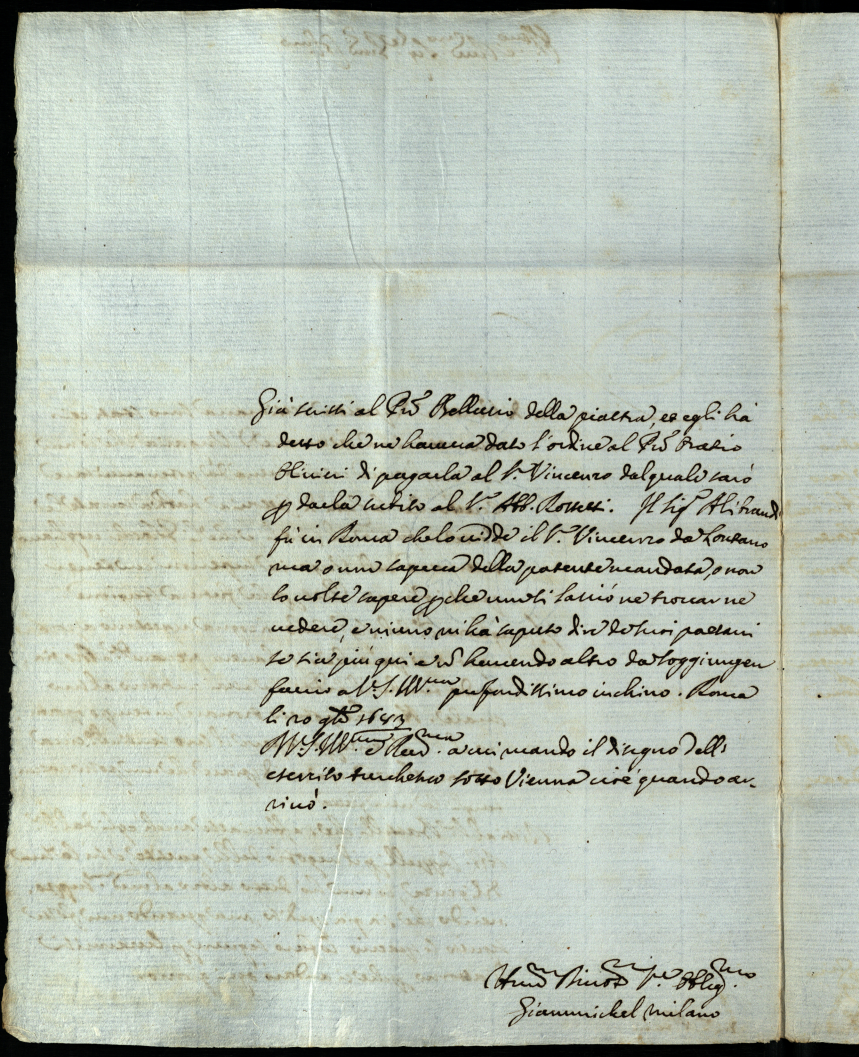 Già scrissi al Pre Bellutio della piastra, et egli hà
detto che ne haveva dato l'ordine al Pre Oratio
Olivieri di pagarla al Sr. Vincenzo dal quale sarò
p darla subito al Sr. Abb. Rossetti. Il Sigr Alibrandi
fù in Roma che lo vidde il Sr. Vincenzo da lontano
ma o non sapeva della patente mandata, o non
lo volse sapere p che non si lasciò ne trovar ne
vedere, e niuno mi hà saputo dire de suoi paesani
se sia più qui e nō havendo altro da soggiungere
faccio a V.S. Illma profondissimo inchino. Roma
li 20 9bre 1683
A V.S. Illma e Revma a cui mando il disegno dell'
esercito turchesco sotto Vienna cioè quando ar-
rivò.
Humo Divotmo Sre Obligmo
Giannichel Milano